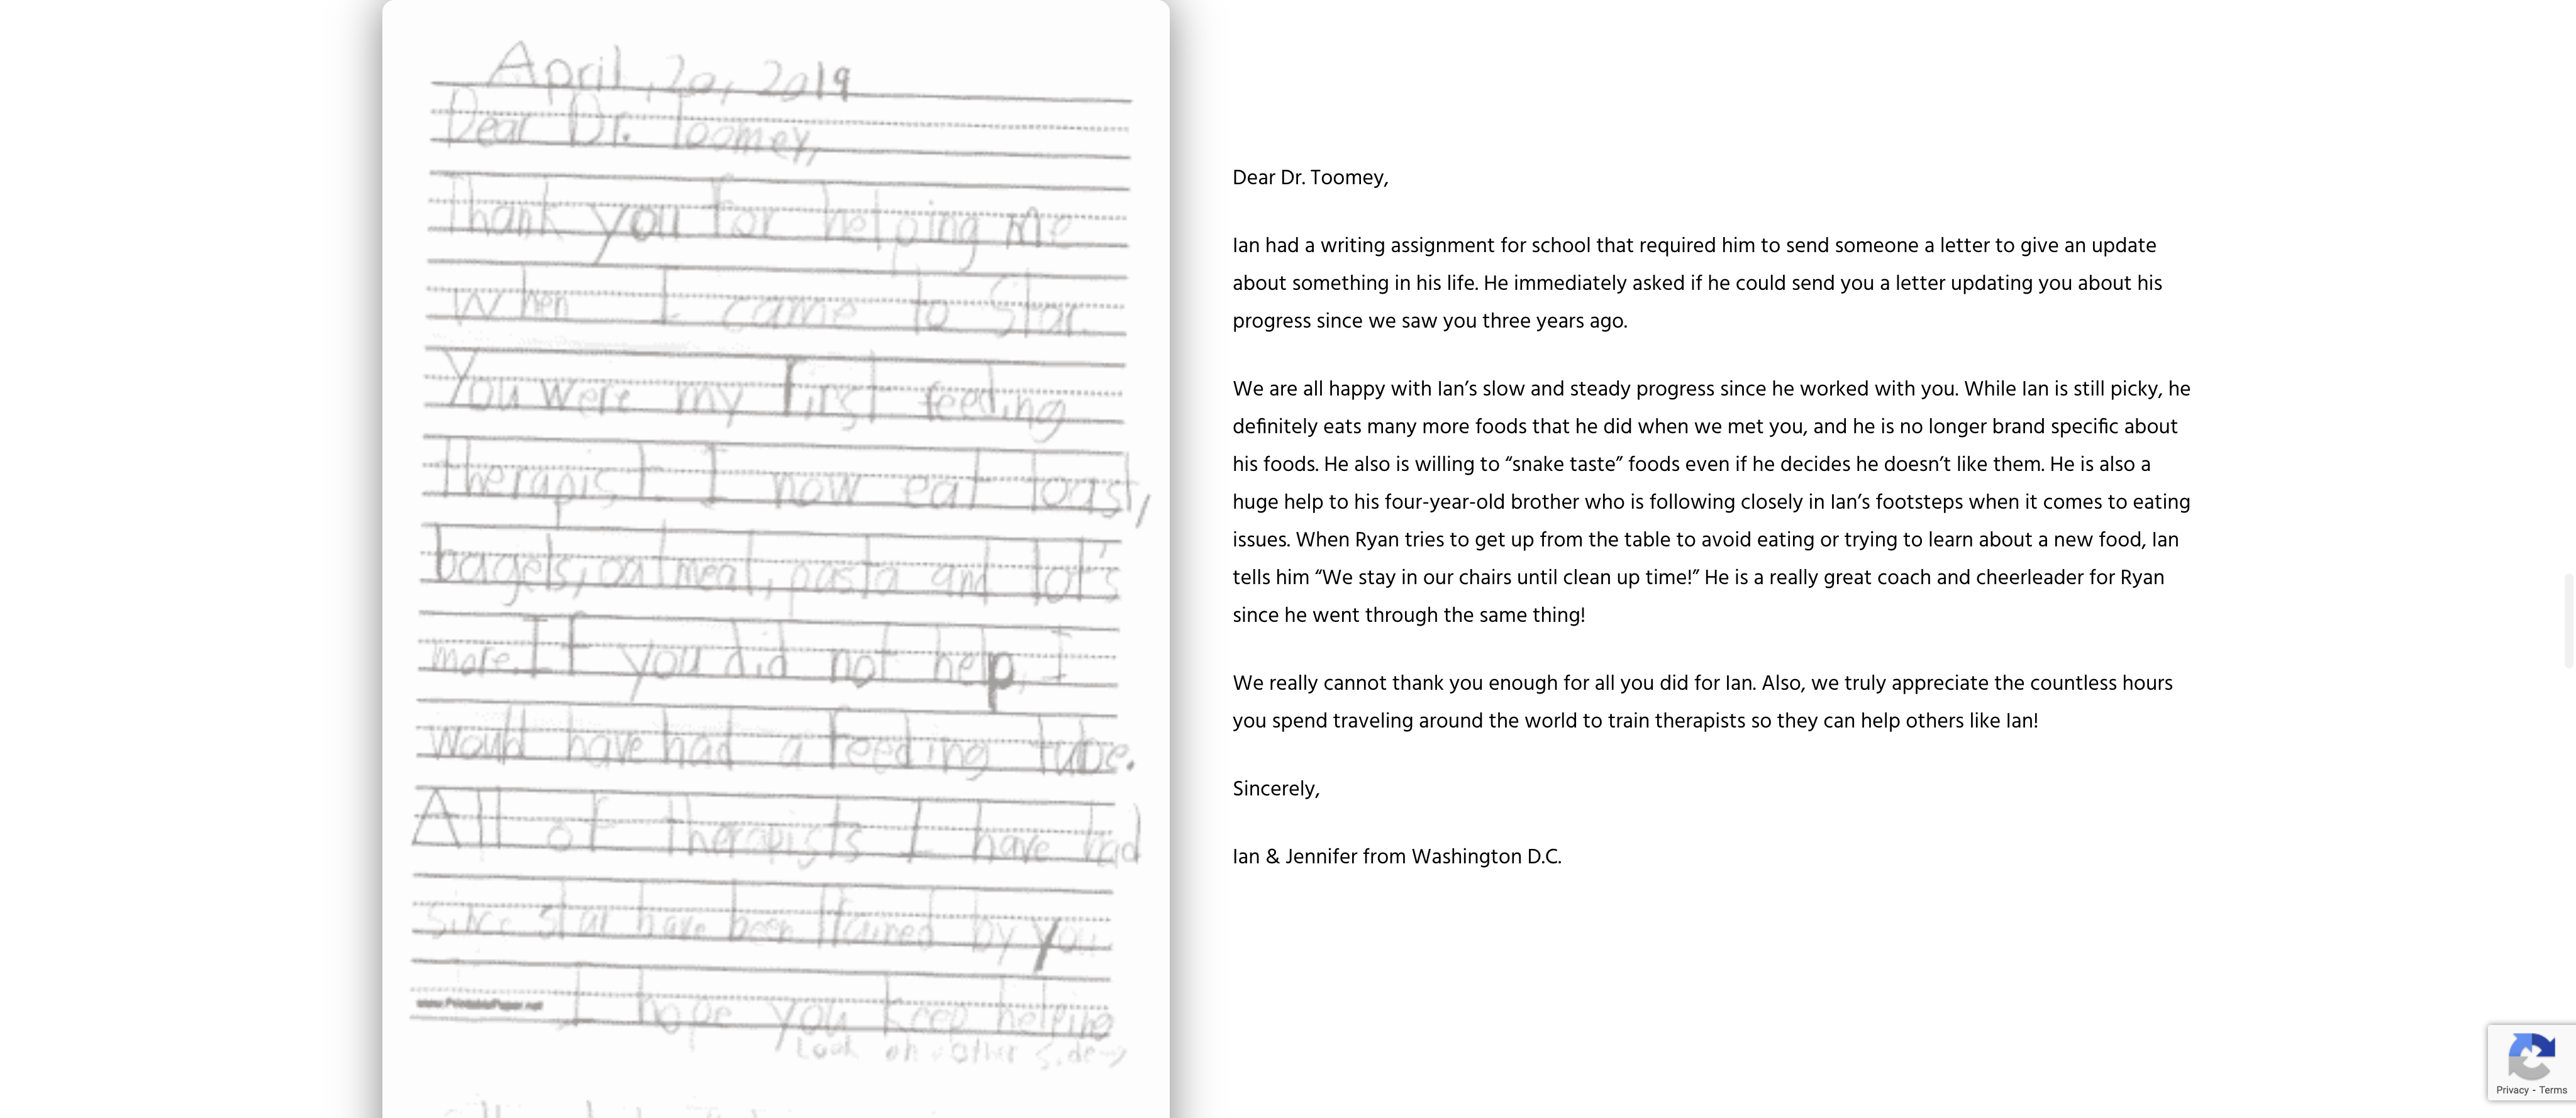 April, 20, 2019
Dear Dr. Toomey,
Thank you for helping me
When I came to Star.
You were my first feeding
therapist. I now eat toast,
bagels, oatmeal, pasta and lot's
more. If you did not help, I
would have had a feeding tube.
All of therapists I have had
since star have been trained by you.
www.PrintablePaper.net
I hope you keep helping
Look on other side
Dear Dr. Toomey,
Ian had a writing assignment for school that required him to send someone a letter to give an update
about something in his life. He immediately asked if he could send you a letter updating you about his
progress since we saw you three years ago.
We are all happy with Ian’s slow and steady progress since he worked with you. While Ian is still picky, he
definitely eats many more foods that he did when we met you, and he is no longer brand specific about
his foods. He also is willing to “snake taste” foods even if he decides he doesn’t like them. He is also a
huge help to his four-year-old brother who is following closely in Ian’s footsteps when it comes to eating
issues. When Ryan tries to get up from the table to avoid eating or trying to learn about a new food, Ian
tells him “We stay in our chairs until clean up time!” He is a really great coach and cheerleader for Ryan
since he went through the same thing!
We really cannot thank you enough for all you did for Ian. Also, we truly appreciate the countless hours
you spend traveling around the world to train therapists so they can help others like Ian!
Sincerely,
Ian & Jennifer from Washington D.C.
Privacy - Terms